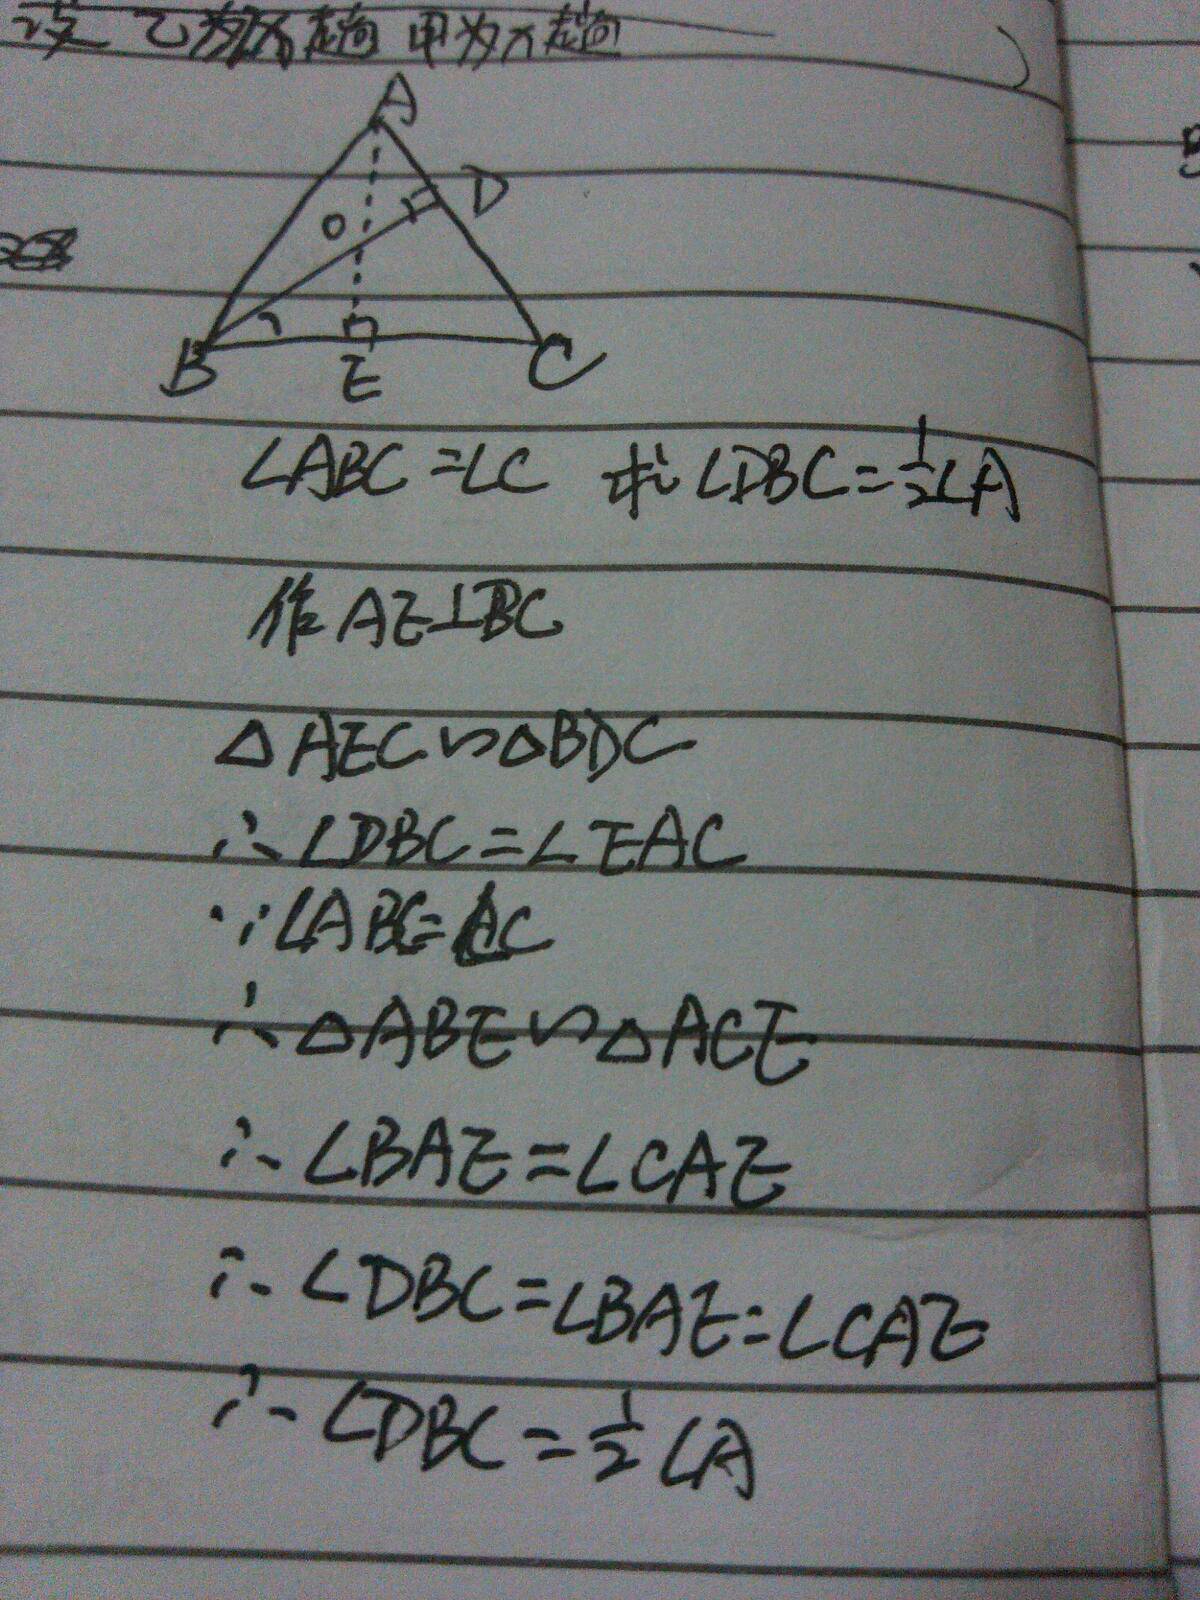 设 乙为 趟 甲为x趟
A
D
O
B
E
C
∠ABC=∠C 求∠DBC=½∠A
作AE⊥BC
△AEC∽△BDC
∴∠DBC=∠EAC
∵∠ABC=∠C
∴△ABE∽△ACE
∴∠BAE=∠CAE
∴∠DBC=∠BAE=∠CAE
∴∠DBC=½∠A